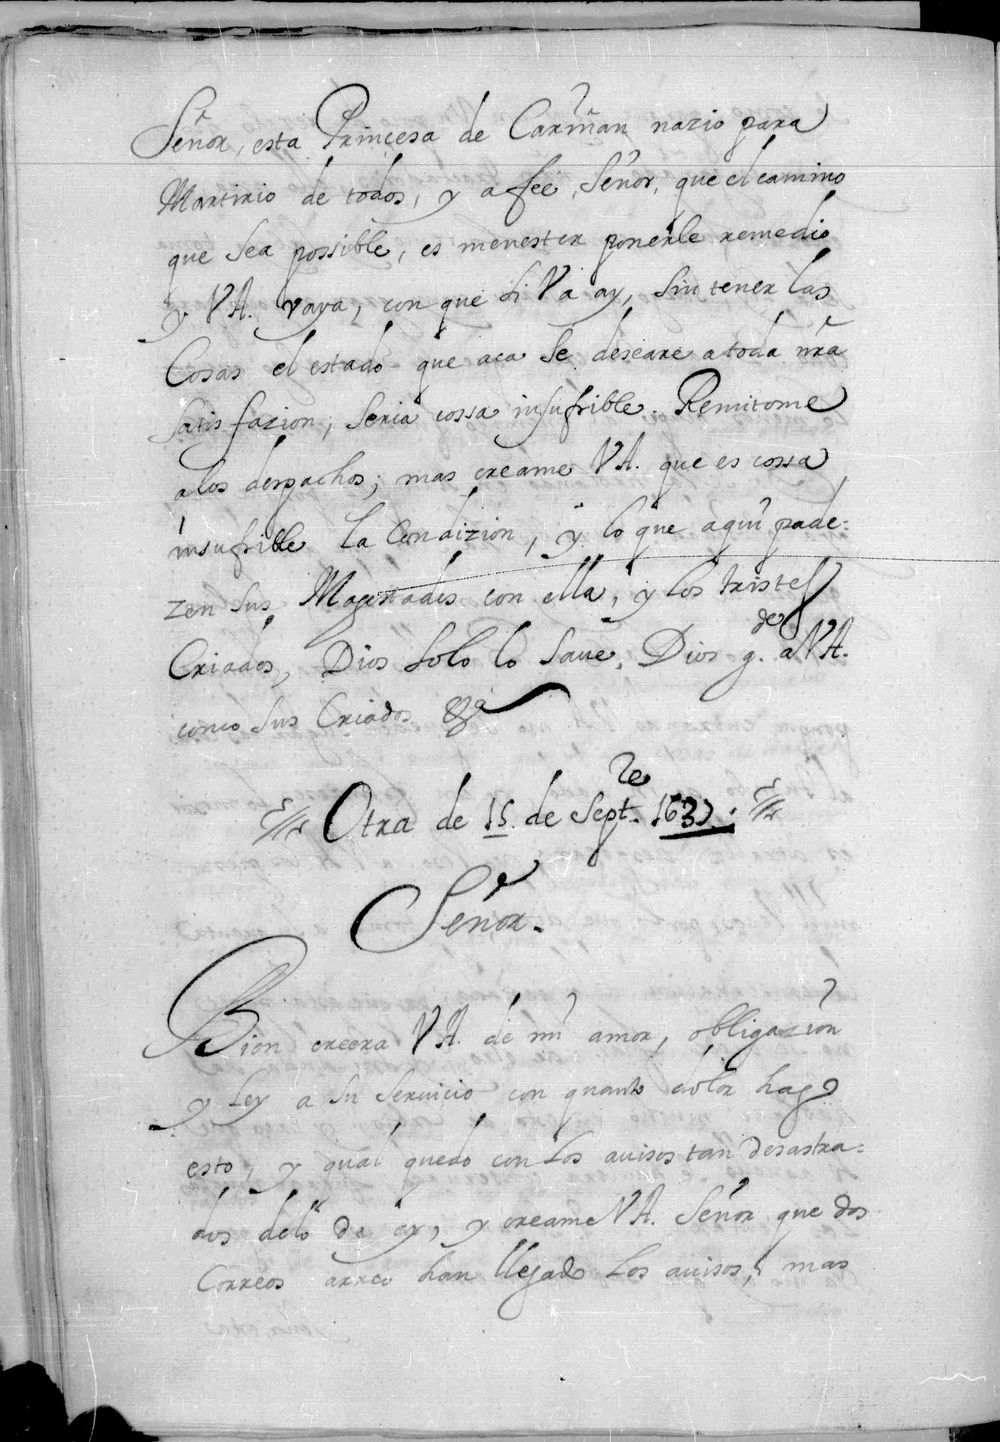 Señor, esta Princesa de Cariñan nazio para
Martirio de todos, y a fee, Señor, que el camino
que sea possible, es menester ponerle remedio
y VA. vaya, con que si Va ay, sin tener las
Cosas el estado que aca se deseare a toda nrã
satisfazion, seria cossa insufrible. Remitome
a los despachos; mas creame VA. que es cossa
insufrible la Condizion, y lo que aqui pade-
zen sus Magestades con ella, y los tristes
Criados, Dios solo lo save. Dios g.de a VA.
como sus Criados &a
Otra de 15. de Sept.re 1637.
Señor.
Bien creera VA. de mi amor, obligazion
y Ley a su servicio con quanto dolor hago
esto, y qual quedo con los avisos tan desastra-
dos delo de ay, y creame VA. Señor que dos
Correos arreo han llegado los avisos, mas